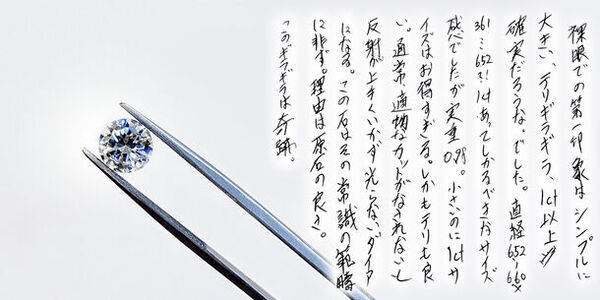 裸眼での第一印象はシンプルに
大きい、テリギラギラ、1ct以上が
確実だろうな。でした。直経6.52〜6.60×
3.61…6.52!! 1ctあってしかるべきなサイズ
感でしたが実重0.98。小さいのに1ctサ
イズはお得すぎる。しかもテリも良
い。通常適切なカットがなされないと
反射が上手くいかず光らないダイア
になる。この石はその常識の範疇
に非ず。理由は原石の良さ。
このギラギラは奇跡。